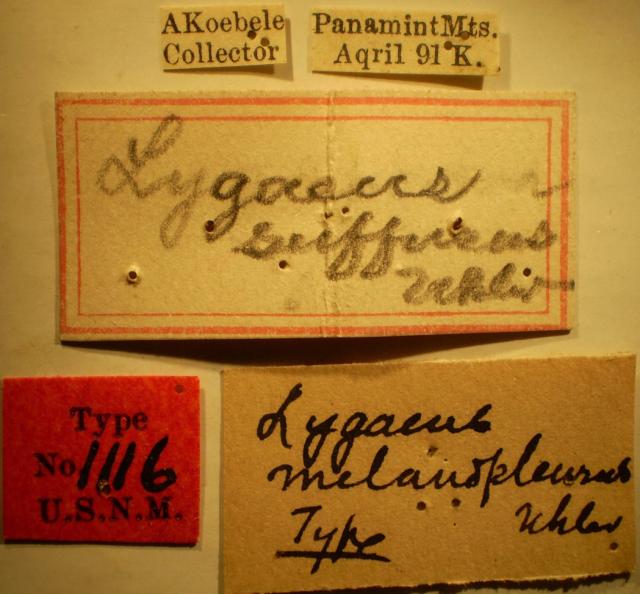 AKoebele
Collector
PanamintMts.
Aqril 91 K.
Lygaeus
suffusus
Uhler
Type
No 1116
U.S.N.M.
Lygaeus
melanopleurus
Uhler
Type